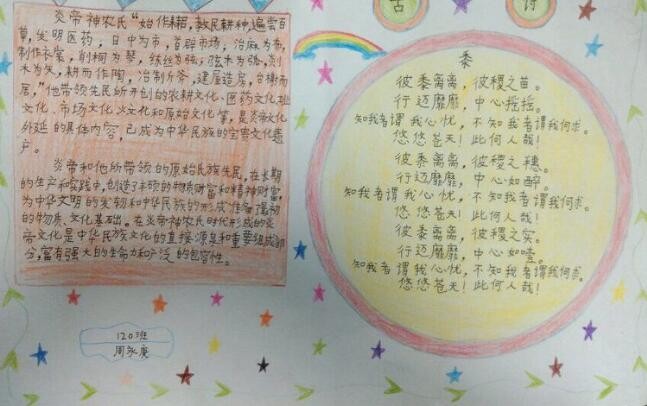 古
诗
炎帝神农氏“始作耒耜,教民耕种,遍尝百
草,发明医药,日中为市,首辟市场,治麻为布,
制作衣裳,削桐为琴,练丝为弦,弦木为弧,剡
木为矢,耕而作陶,冶制斤斧,建屋造房,台榭而
居,”他带领先民所开创的农耕文化、医药文化
文化、市场文化、火文化和原始文化等,是炎帝文化
外延的具体内容,已成为中华民族的宝贵文化遗
产。
炎帝和他所带领的原始氏族先民,在长期
的生产和实践中,创造了丰硕的物质财富和精神财富,
为中华文明的发轫和中华民族的形成准备
的物质、文化基础。在炎帝神农氏时代形成的炎
帝文化是中华民族文化的直接源泉和重要组成部
分,富有强大的生命力和广泛的包容性。
120班
周永庚
黍
彼黍离离,彼稷之苗。
行迈靡靡,中心摇摇。
知我者谓我心忧,不知我者谓我何求。
悠悠苍天!此何人哉!
彼黍离离,彼稷之穗。
行迈靡靡,中心如醉。
知我者谓我心忧,不知我者谓我何求。
悠悠苍天!此何人哉!
彼黍离离,彼稷之实。
行迈靡靡,中心如噎。
知我者谓我心忧,不知我者谓我何求。
悠悠苍天!此何人哉!